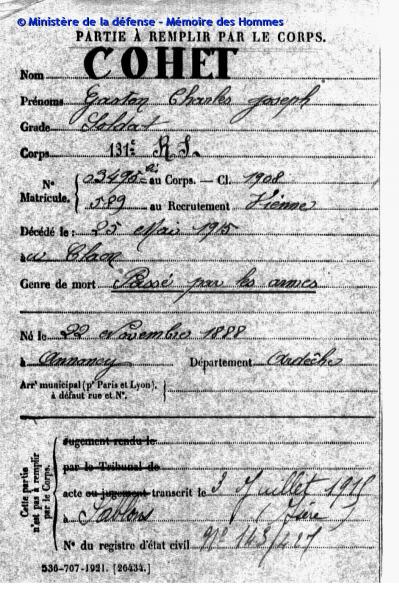 © Ministère de la défense - Mémoire des Hommes
PARTIE À REMPLIR PAR LE CORPS.
Nom COHET
Prénoms Gaston Charles Joseph
Grade Soldat
Corps 131e R I.
N° Matricule. 03495 au Corps. — Cl. 1908
589 au Recrutement Vienne
Décédé le : 25 Mai 1915
à
Genre de mort Passé par les armes
Né le 22 Novembre 1888
à Annonay Département Ardèche
Arrt municipal (pr Paris et Lyon), à défaut rue et N°.
Cette partie n'est pas à remplir par le Corps.
Jugement rendu le
par le Tribunal de
acte ou jugement transcrit le 3 Juillet 1915
à Sablons (Isère)
N° du registre d'état civil N° 143/227
536-707-1921. [26434.]